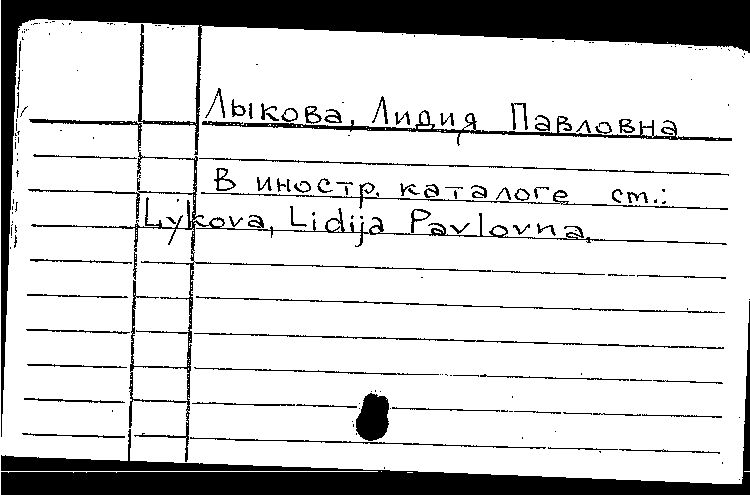 Лыкова, Лидия Павловна
В иностр. каталоге см.:
Lykova, Lidija Pavlovna.